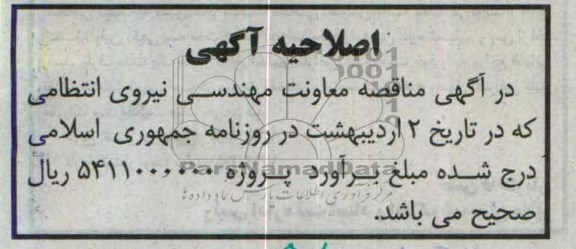 اصلاحیه آگهی
در آگهی مناقصه معاونت مهندسی نیروی انتظامی
که در تاریخ ۲ اردیبهشت در روزنامه جمهوری اسلامی
درج شده مبلغ برآورد پروژه ۵۴۱۱۰۰۰۰۰۰ ریال
صحیح می باشد.
ParsNamadData